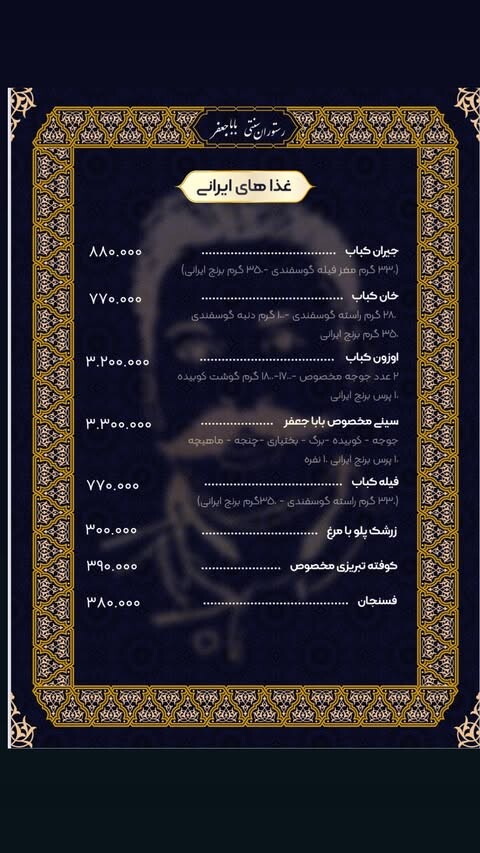 رستوران سنتی بابا جعفر
غذا های ایرانی
جیران کباب ........................ ۸۸۰.۰۰۰
(۳۳۰ گرم مغز فیله گوسفندی -۳۵۰ گرم برنج ایرانی)
خان کباب ........................ ۷۷۰.۰۰۰
۲۸۰ گرم راسته گوسفندی -۱۰۰ گرم دنبه گوسفندی
۳۵۰ گرم برنج ایرانی
اوزون کباب ........................ ۳.۲۰۰.۰۰۰
۲ عدد جوجه مخصوص -۱۷۰۰-۱۸۰۰ گرم گوشت کوبیده
۱۰ پرس برنج ایرانی
سینی مخصوص بابا جعفر ............ ۳.۳۰۰.۰۰۰
جوجه - کوبیده -برگ - بختیاری -چنجه - ماهیچه
۱۰ پرس برنج ایرانی ۱۰ نفره
فیله کباب ........................ ۷۷۰.۰۰۰
(۳۳۰ گرم راسته گوسفندی - ۳۵۰گرم برنج ایرانی)
زرشک پلو با مرغ .................... ۳۰۰.۰۰۰
کوفته تبریزی مخصوص ............ ۳۹۰.۰۰۰
فسنجان ........................ ۳۸۰.۰۰۰